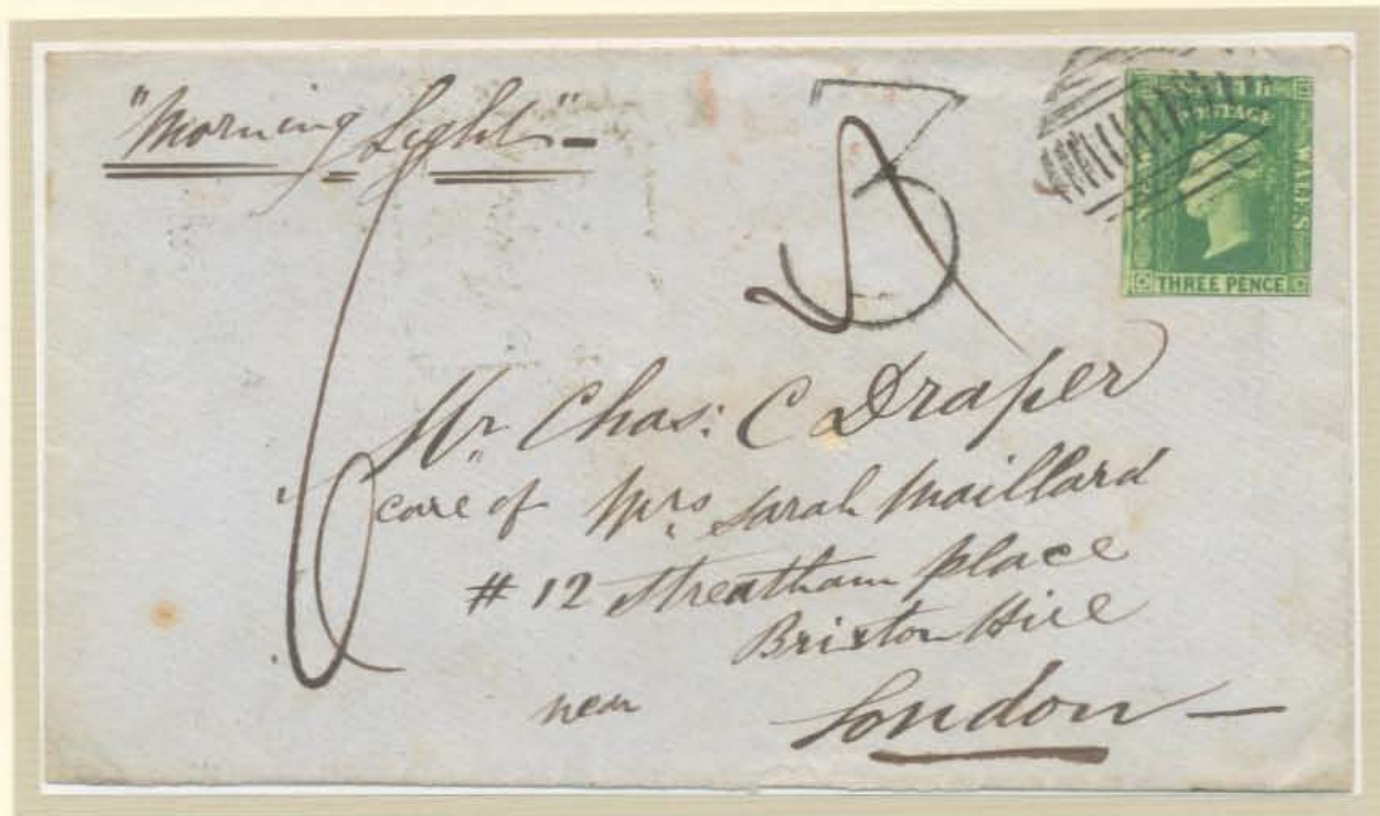 "Morning Light"
3
6
POSTAGE
WALES
THREE PENCE
Mr Chas: C Draper
care of Mrs Sarah Maillard
# 12 Streatham place
Brixton Hill
near London